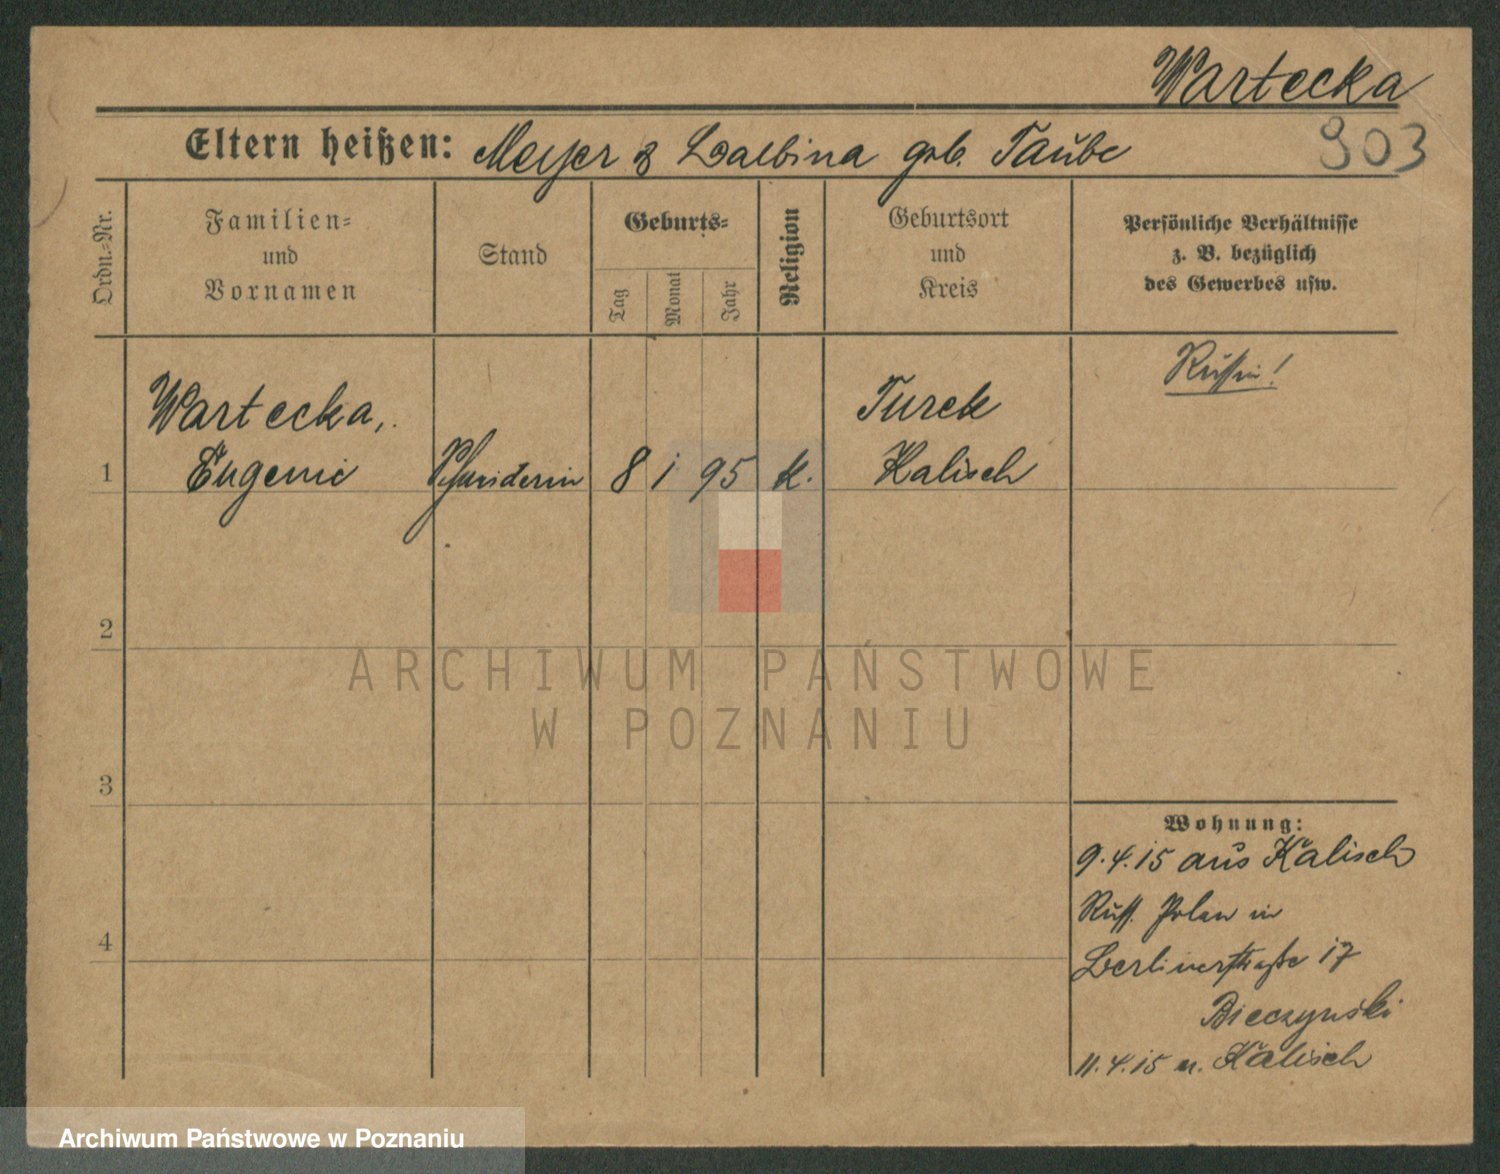 Wartecka
903
Eltern heißen: Meyer & Balbina geb. Taube
Ordn.-Nr.
Familien-
und
Vornamen
Stand
Geburts-
Tag
Monat
Jahr
Religion
Geburtsort
und
Kreis
Persönliche Verhältnisse
z. B. bezüglich
des Gewerbes usw.
Russin!
Wartecka,
Turek
1 Eugenie Schneiderin 8 1 95 k. Kalisch
2
ARCHIWUM PAŃSTWOWE
W POZNANIU
3
Wohnung:
9.4.15 aus Kalisch
Russ. Polen in
4
Berlinerstraße 17
Bieczynski
11.4.15 n. Kalisch
Archiwum Państwowe w Poznaniu